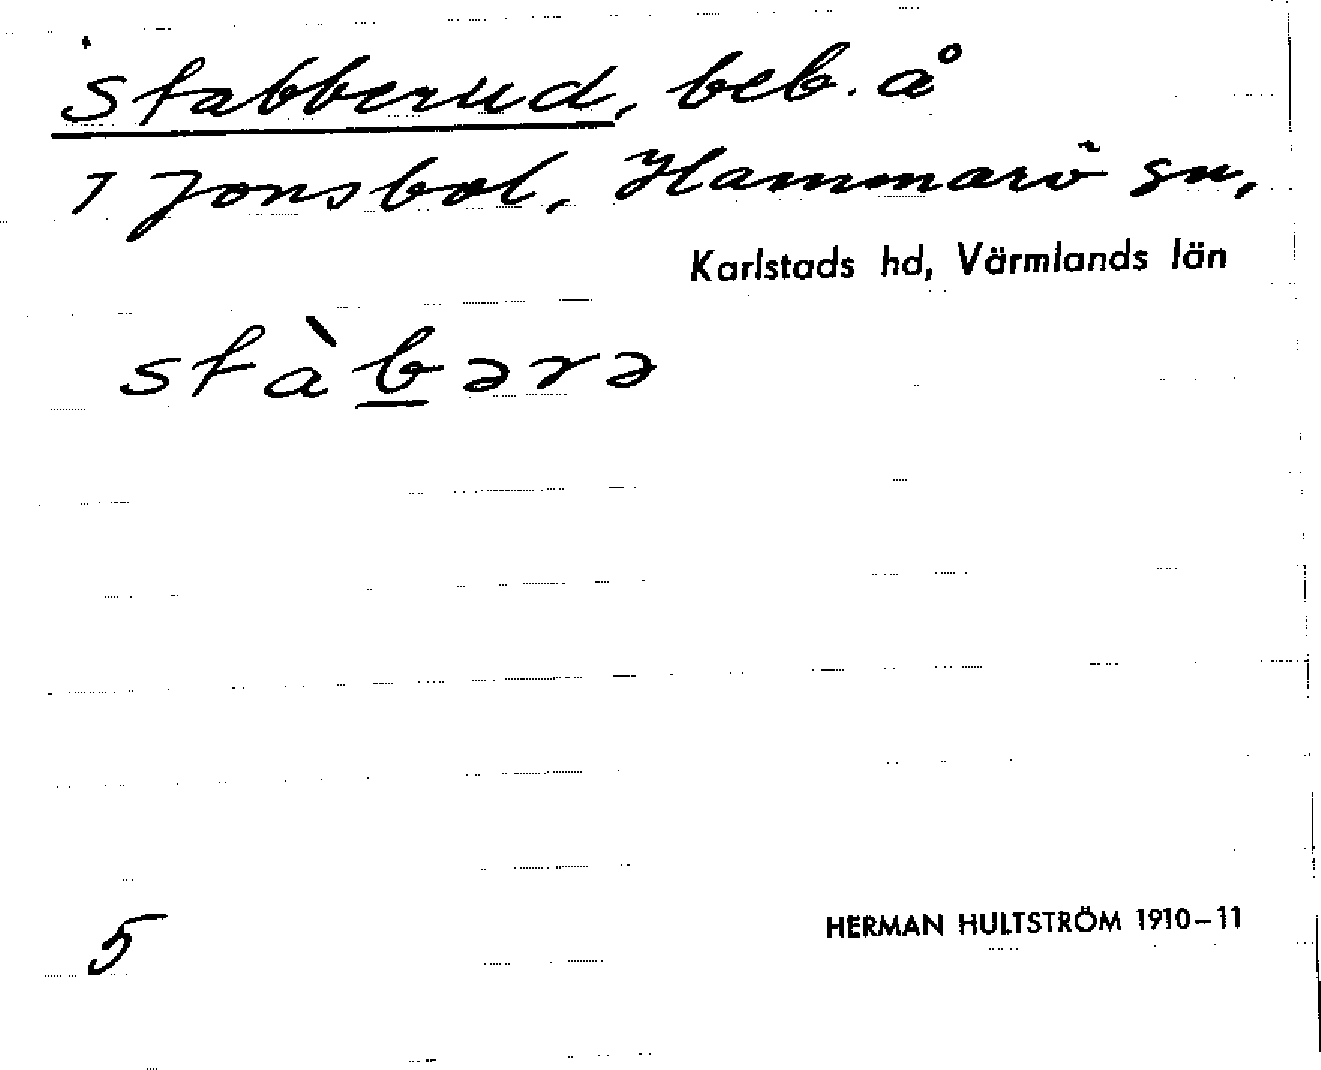 Stabberud, beb. å
1 Jonsbol, Hammarö sn,
Karlstads hd, Värmlands län
stàb̲ərə
5
HERMAN HULTSTRÖM 1910–11